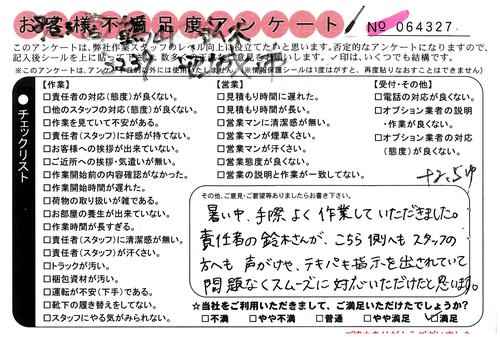 お客様不満足度アンケート
№ 064327
このアンケートは、弊社作業スタッフのレベル向上に役立てたいと思います。否定的なアンケートになりますので、
※このアンケートは、アンケート目的以外には使用いたしません。※情報保護シールは1度はがすと、再度貼りなおすことはできません
チェックリスト
【作業】
□責任者の対応(態度)が良くない。
□他のスタッフの対応(態度)が良くない。
□作業を見ていて不安がある。
□責任者(スタッフ)に好感が持てない。
□お客様への挨拶が出来ていない。
□ご近所への挨拶・気遣いが無い。
□作業開始前の内容確認がなかった。
□作業開始時間が遅れた。
□荷物の取り扱いが雑である。
□お部屋の養生が出来ていない。
□作業時間が長すぎる。
□責任者(スタッフ)に清潔感が無い。
□責任者(スタッフ)が汗くさい。
□トラックが汚い。
□梱包資材が汚い。
□運転が不安(下手)である。
□靴下の履き替えをしてない。
□スタッフにやる気がみられない。
【営業】
□見積もり時間に遅れた。
□見積もり時間が長い。
□営業マンに清潔感が無い。
□営業マンが煙草くさい。
□営業マンが汗くさい。
□営業態度が良くない。
□営業の説明と作業が一致してない。
【受付・その他】
□電話の対応が良くない。
□オプション業者の説明
・作業が良くない。
□オプション業者の対応
(態度)が良くない。
その他、ご意見・ご要望等ありましたらお書き下さい。
暑い中、手際よく作業していただきました。
責任者の鈴木さんが、こちら側へもスタッフの
方へも声がけや、テキパキ指示を出されていて
問題なくスムーズに対応いただけたと思います。
☆当社をご利用いただきまして、ご満足いただけたでしょうか?
□不満 □やや不満 □普通 □やや満足 ☑満足